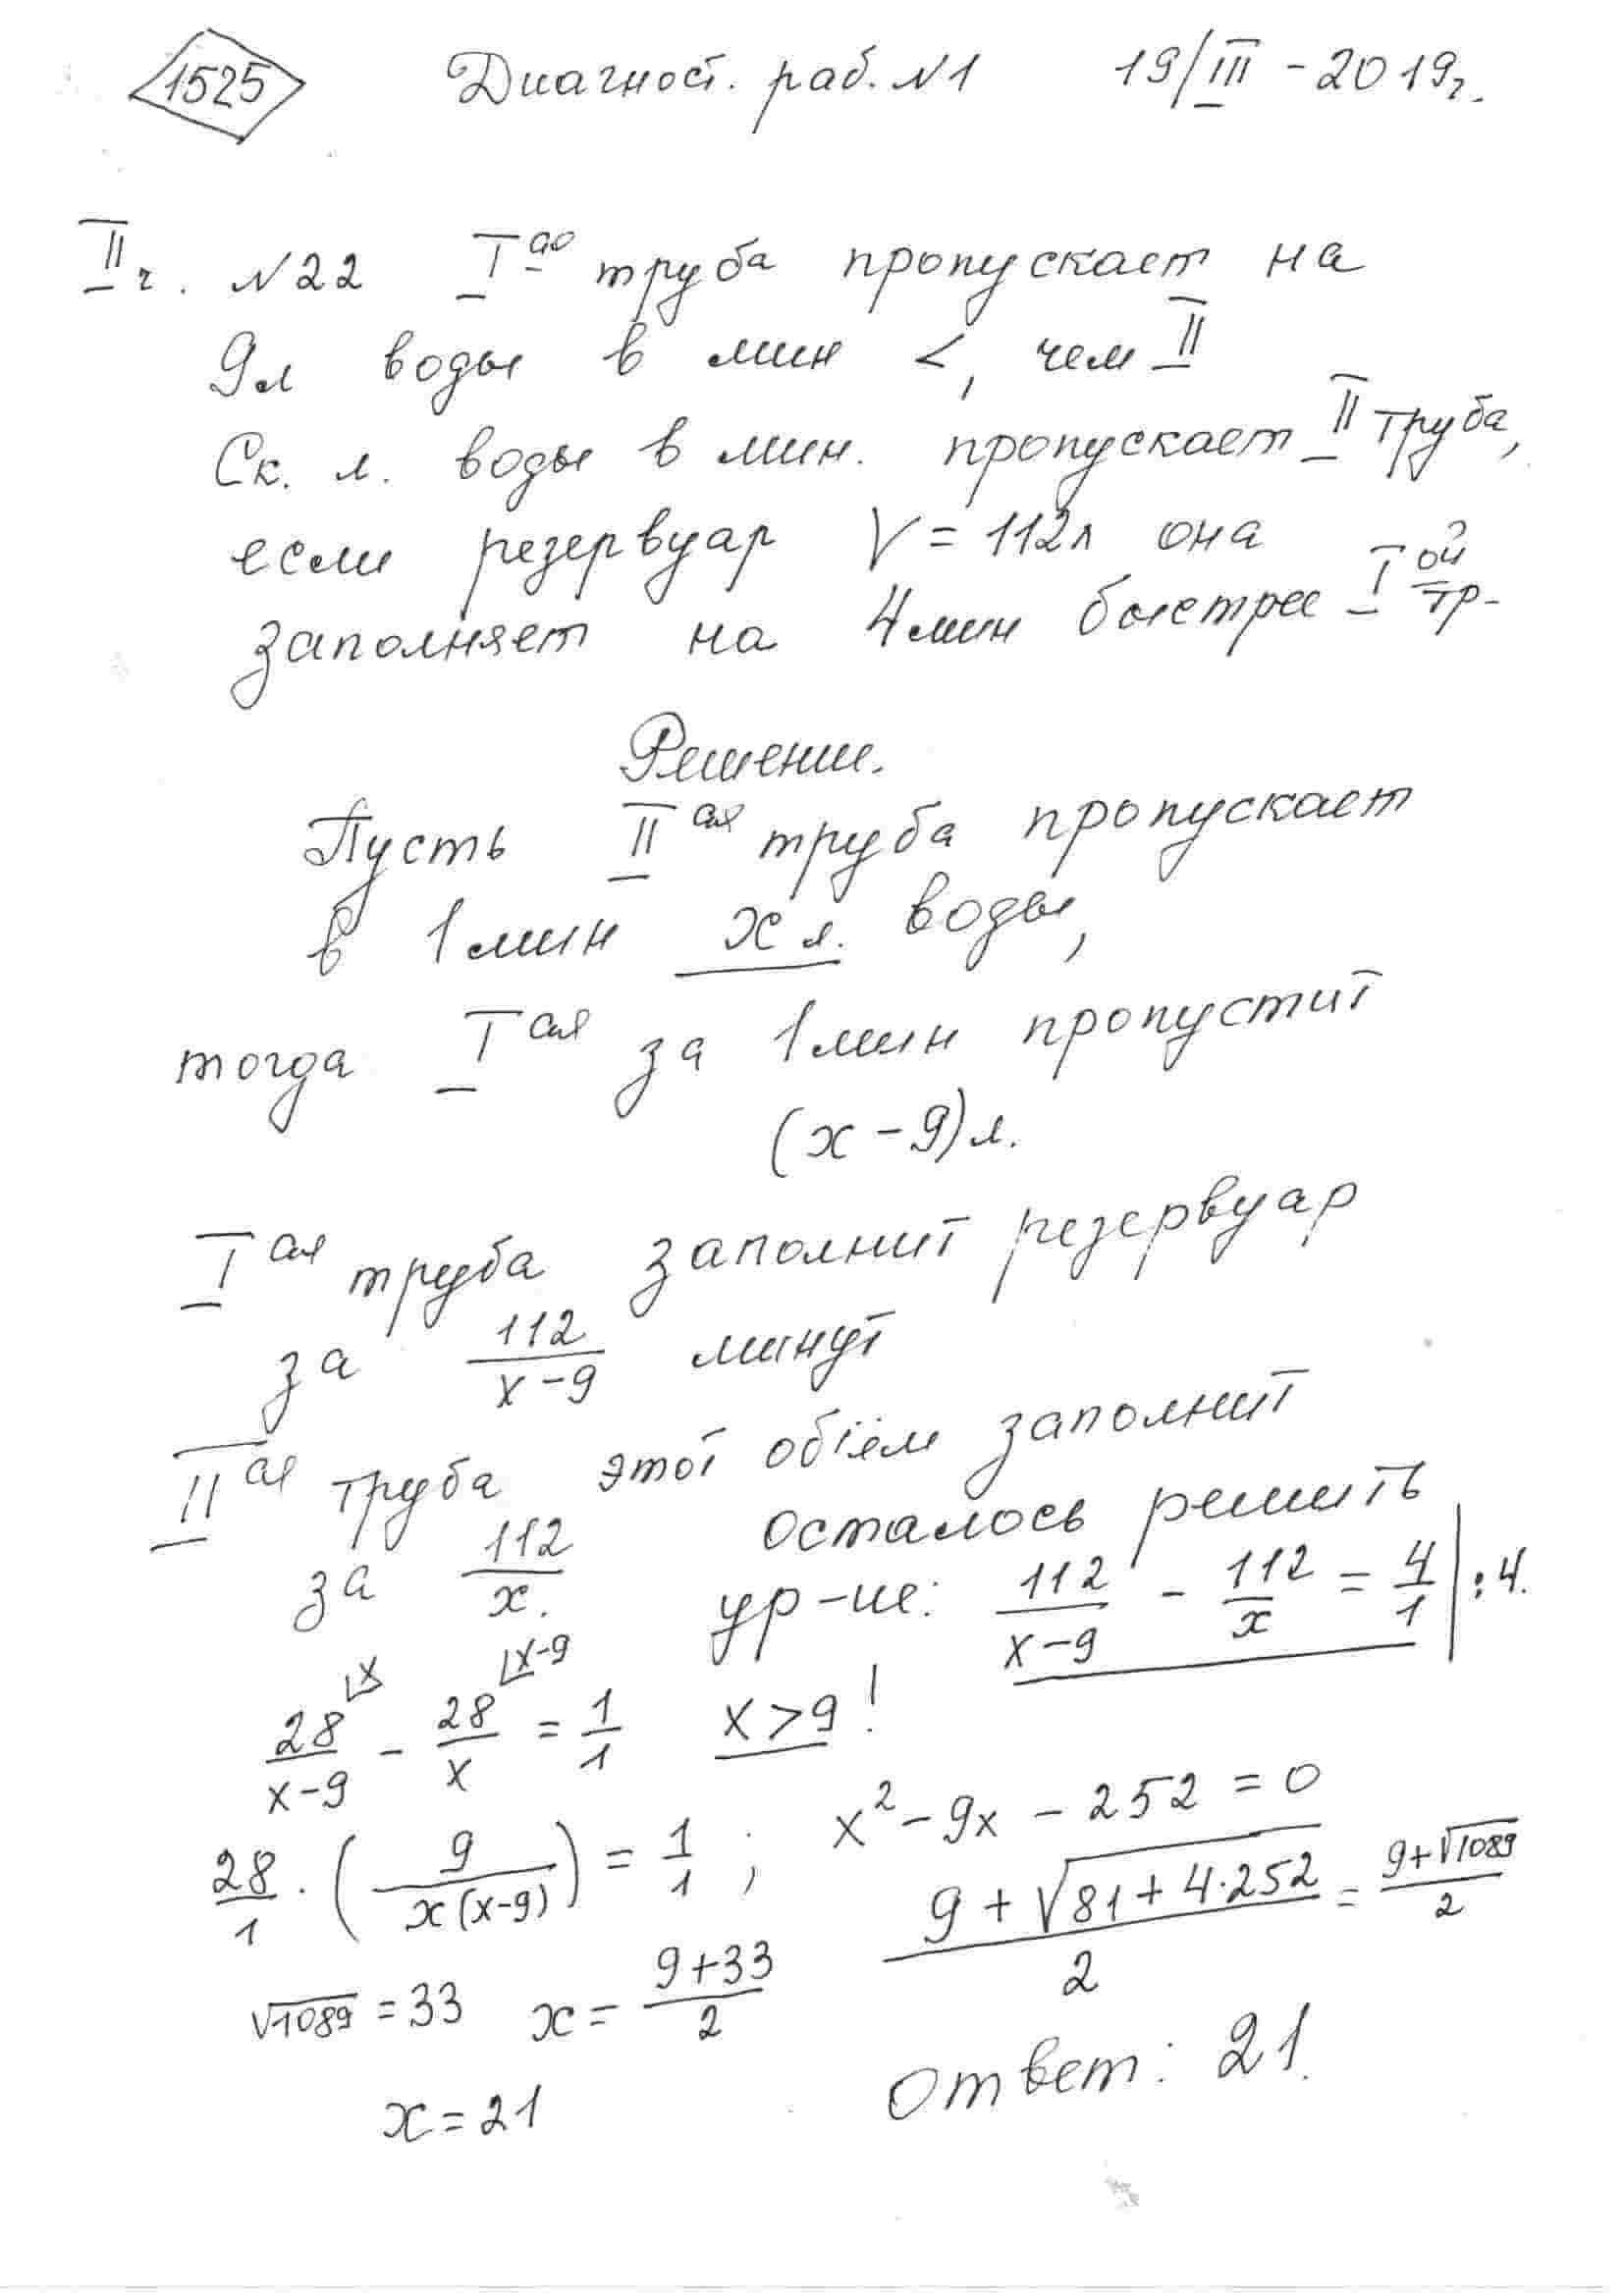 1525 Диагност. раб. №1 19/III - 2019г.
IIч. №22 Iая труба пропускает на
9л воды в мин <, чем II
Ск. л. воды в мин. пропускает II труба,
если резервуар V = 112л она
заполняет на 4мин быстрее Iой тр.?
Решение.
Пусть IIая труба пропускает
в 1 мин x л. воды,
тогда Iая за 1 мин пропустит
(x - 9) л.
Iая труба заполнит резервуар
за 112/(x-9) минут
IIая труба этот объём заполнит
за 112/x. осталось решить
ур-ие: 112/(x-9) - 112/x = 4/1 | :4.
28/(x-9) - 28/x = 1/1 x > 9 !
x x-9
28/1 · (9/(x(x-9))) = 1/1 ; x² - 9x - 252 = 0
(9 + √(81 + 4·252))/2 = (9+√1089)/2
√1089 = 33 x = (9+33)/2
x = 21 Ответ: 21.